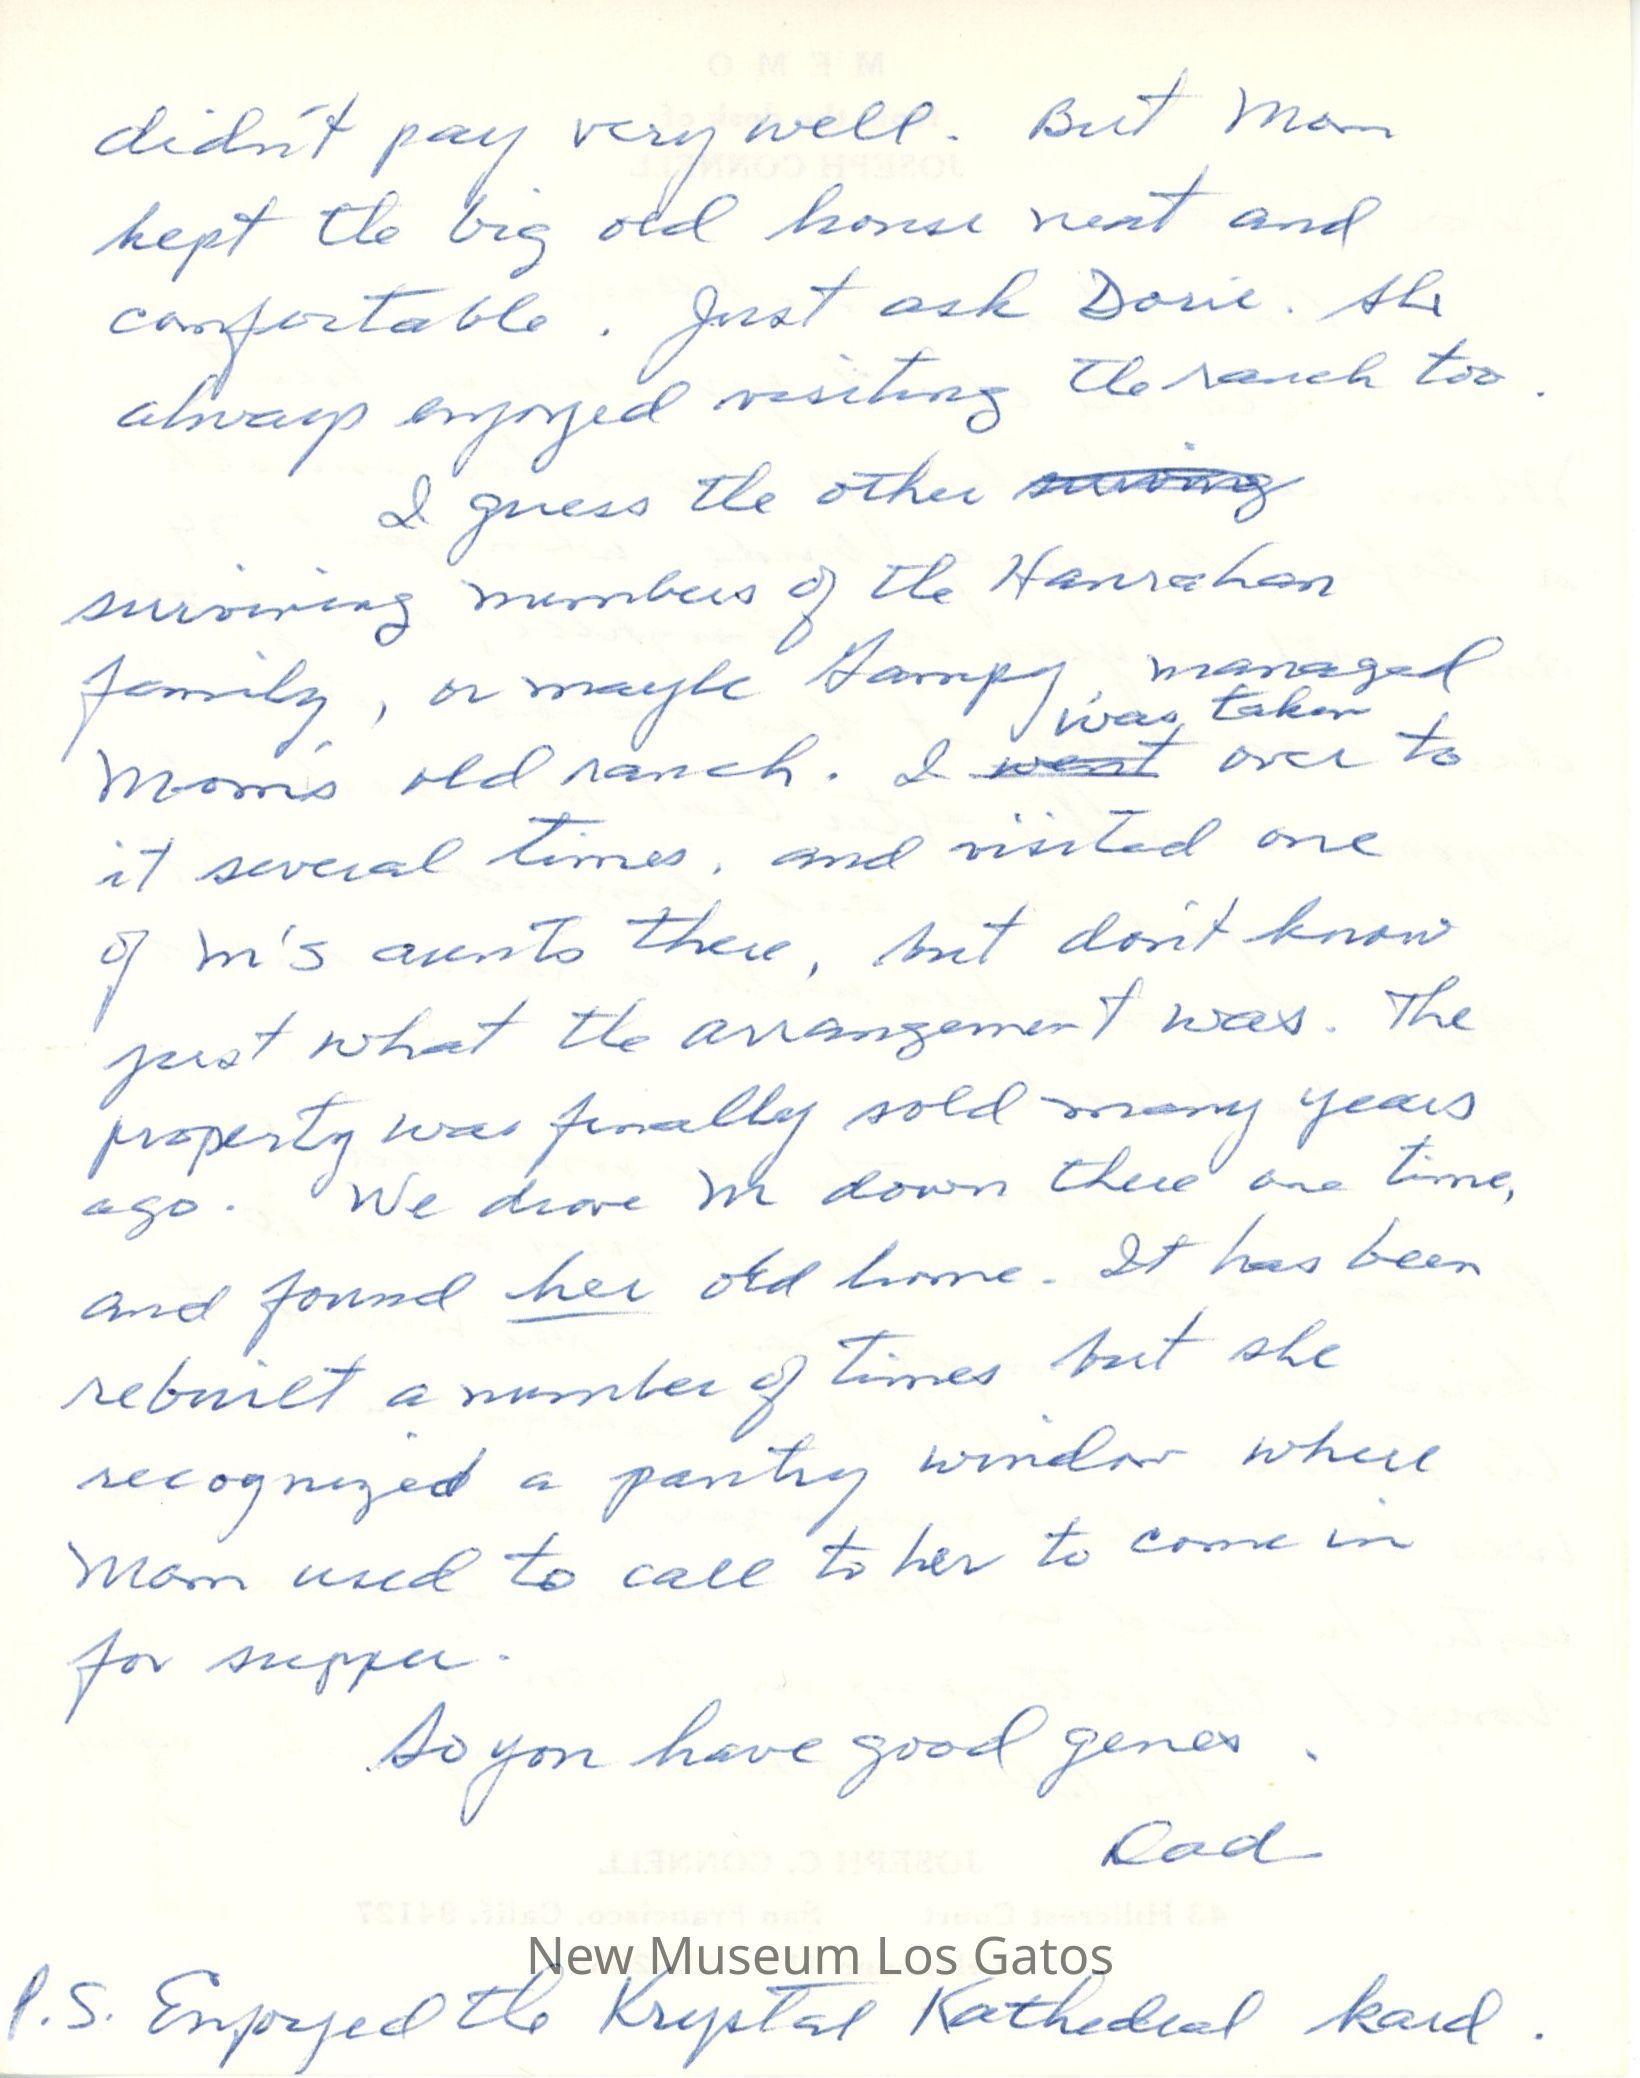 didn't pay very well. But Mom
kept the big old house neat and
comfortable. Just ask Dorie. She
always enjoyed visiting the ranch too.
I guess the other
surviving members of the Hanrahan
family, or maybe Gampy, managed
was taken
Mom's old ranch. I went over to
it several times, and visited one
of M's aunts there, but don't know
just what the arrangement was. The
property was finally sold many years
ago. We drove M down there one time,
and found her old home. It has been
rebuilt a number of times but she
recognized a pantry window where
Mom used to call to her to come in
for supper.
So you have good genes.
Dad
New Museum Los Gatos
P.S. Enjoyed the Krystal Kathedral kard.